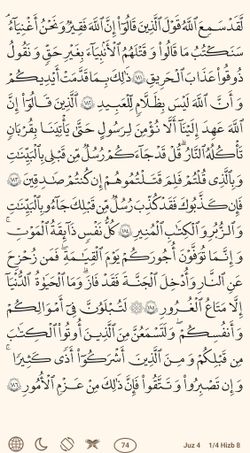 لَّقَدْ سَمِعَ ٱللَّهُ قَوْلَ ٱلَّذِينَ قَالُوٓا۟ إِنَّ ٱللَّهَ فَقِيرٌ وَنَحْنُ أَغْنِيَآءُ
سَنَكْتُبُ مَا قَالُوا۟ وَقَتْلَهُمُ ٱلْأَنۢبِيَآءَ بِغَيْرِ حَقٍّ وَنَقُولُ
ذُوقُوا۟ عَذَابَ ٱلْحَرِيقِ ١٨١ ذَٰلِكَ بِمَا قَدَّمَتْ أَيْدِيكُمْ
وَأَنَّ ٱللَّهَ لَيْسَ بِظَلَّامٍ لِّلْعَبِيدِ ١٨٢ ٱلَّذِينَ قَالُوٓا۟ إِنَّ
ٱللَّهَ عَهِدَ إِلَيْنَآ أَلَّا نُؤْمِنَ لِرَسُولٍ حَتَّىٰ يَأْتِيَنَا بِقُرْبَانٍ
تَأْكُلُهُ ٱلنَّارُ ۗ قُلْ قَدْ جَآءَكُمْ رُسُلٌ مِّن قَبْلِى بِٱلْبَيِّنَٰتِ
وَبِٱلَّذِى قُلْتُمْ فَلِمَ قَتَلْتُمُوهُمْ إِن كُنتُمْ صَٰدِقِينَ ١٨٣
فَإِن كَذَّبُوكَ فَقَدْ كُذِّبَ رُسُلٌ مِّن قَبْلِكَ جَآءُو بِٱلْبَيِّنَٰتِ
وَٱلزُّبُرِ وَٱلْكِتَٰبِ ٱلْمُنِيرِ ١٨٤ كُلُّ نَفْسٍ ذَآئِقَةُ ٱلْمَوْتِ ۗ
وَإِنَّمَا تُوَفَّوْنَ أُجُورَكُمْ يَوْمَ ٱلْقِيَٰمَةِ ۖ فَمَن زُحْزِحَ
عَنِ ٱلنَّارِ وَأُدْخِلَ ٱلْجَنَّةَ فَقَدْ فَازَ ۗ وَمَا ٱلْحَيَوٰةُ ٱلدُّنْيَآ
إِلَّا مَتَٰعُ ٱلْغُرُورِ ١٨٥ ۞ لَتُبْلَوُنَّ فِىٓ أَمْوَٰلِكُمْ
وَأَنفُسِكُمْ وَلَتَسْمَعُنَّ مِنَ ٱلَّذِينَ أُوتُوا۟ ٱلْكِتَٰبَ
مِن قَبْلِكُمْ وَمِنَ ٱلَّذِينَ أَشْرَكُوٓا۟ أَذًى كَثِيرًا ۚ
وَإِن تَصْبِرُوا۟ وَتَتَّقُوا۟ فَإِنَّ ذَٰلِكَ مِنْ عَزْمِ ٱلْأُمُورِ ١٨٦
74 Juz 4 1/4 Hizb 8